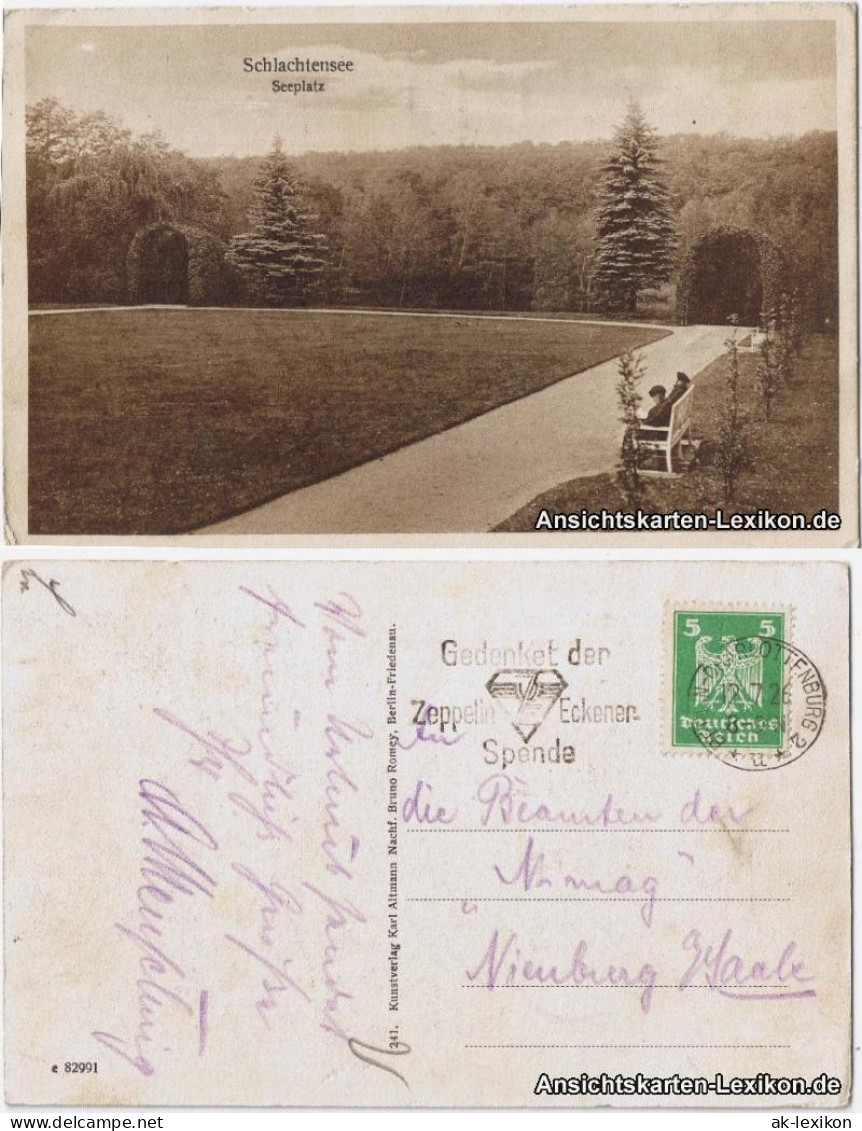 Schlachtensee
Seeplatz
Ansichtskarten-Lexikon.de
Vom Urlaub sendet
freundliche Grüße
Gedenket der
Zeppelin Eckener-
Spende
5 5
Deutsches
Reich
CHARLOTTENBURG 2
12.7.26
An
die Beamten der
"Nimag"
Nienburg /Saale
241. Kunstverlag Karl Altmann Nachf. Bruno Romey, Berlin-Friedenau.
e 82991
Ansichtskarten-Lexikon.de
www.delcampe.net
ak-lexikon